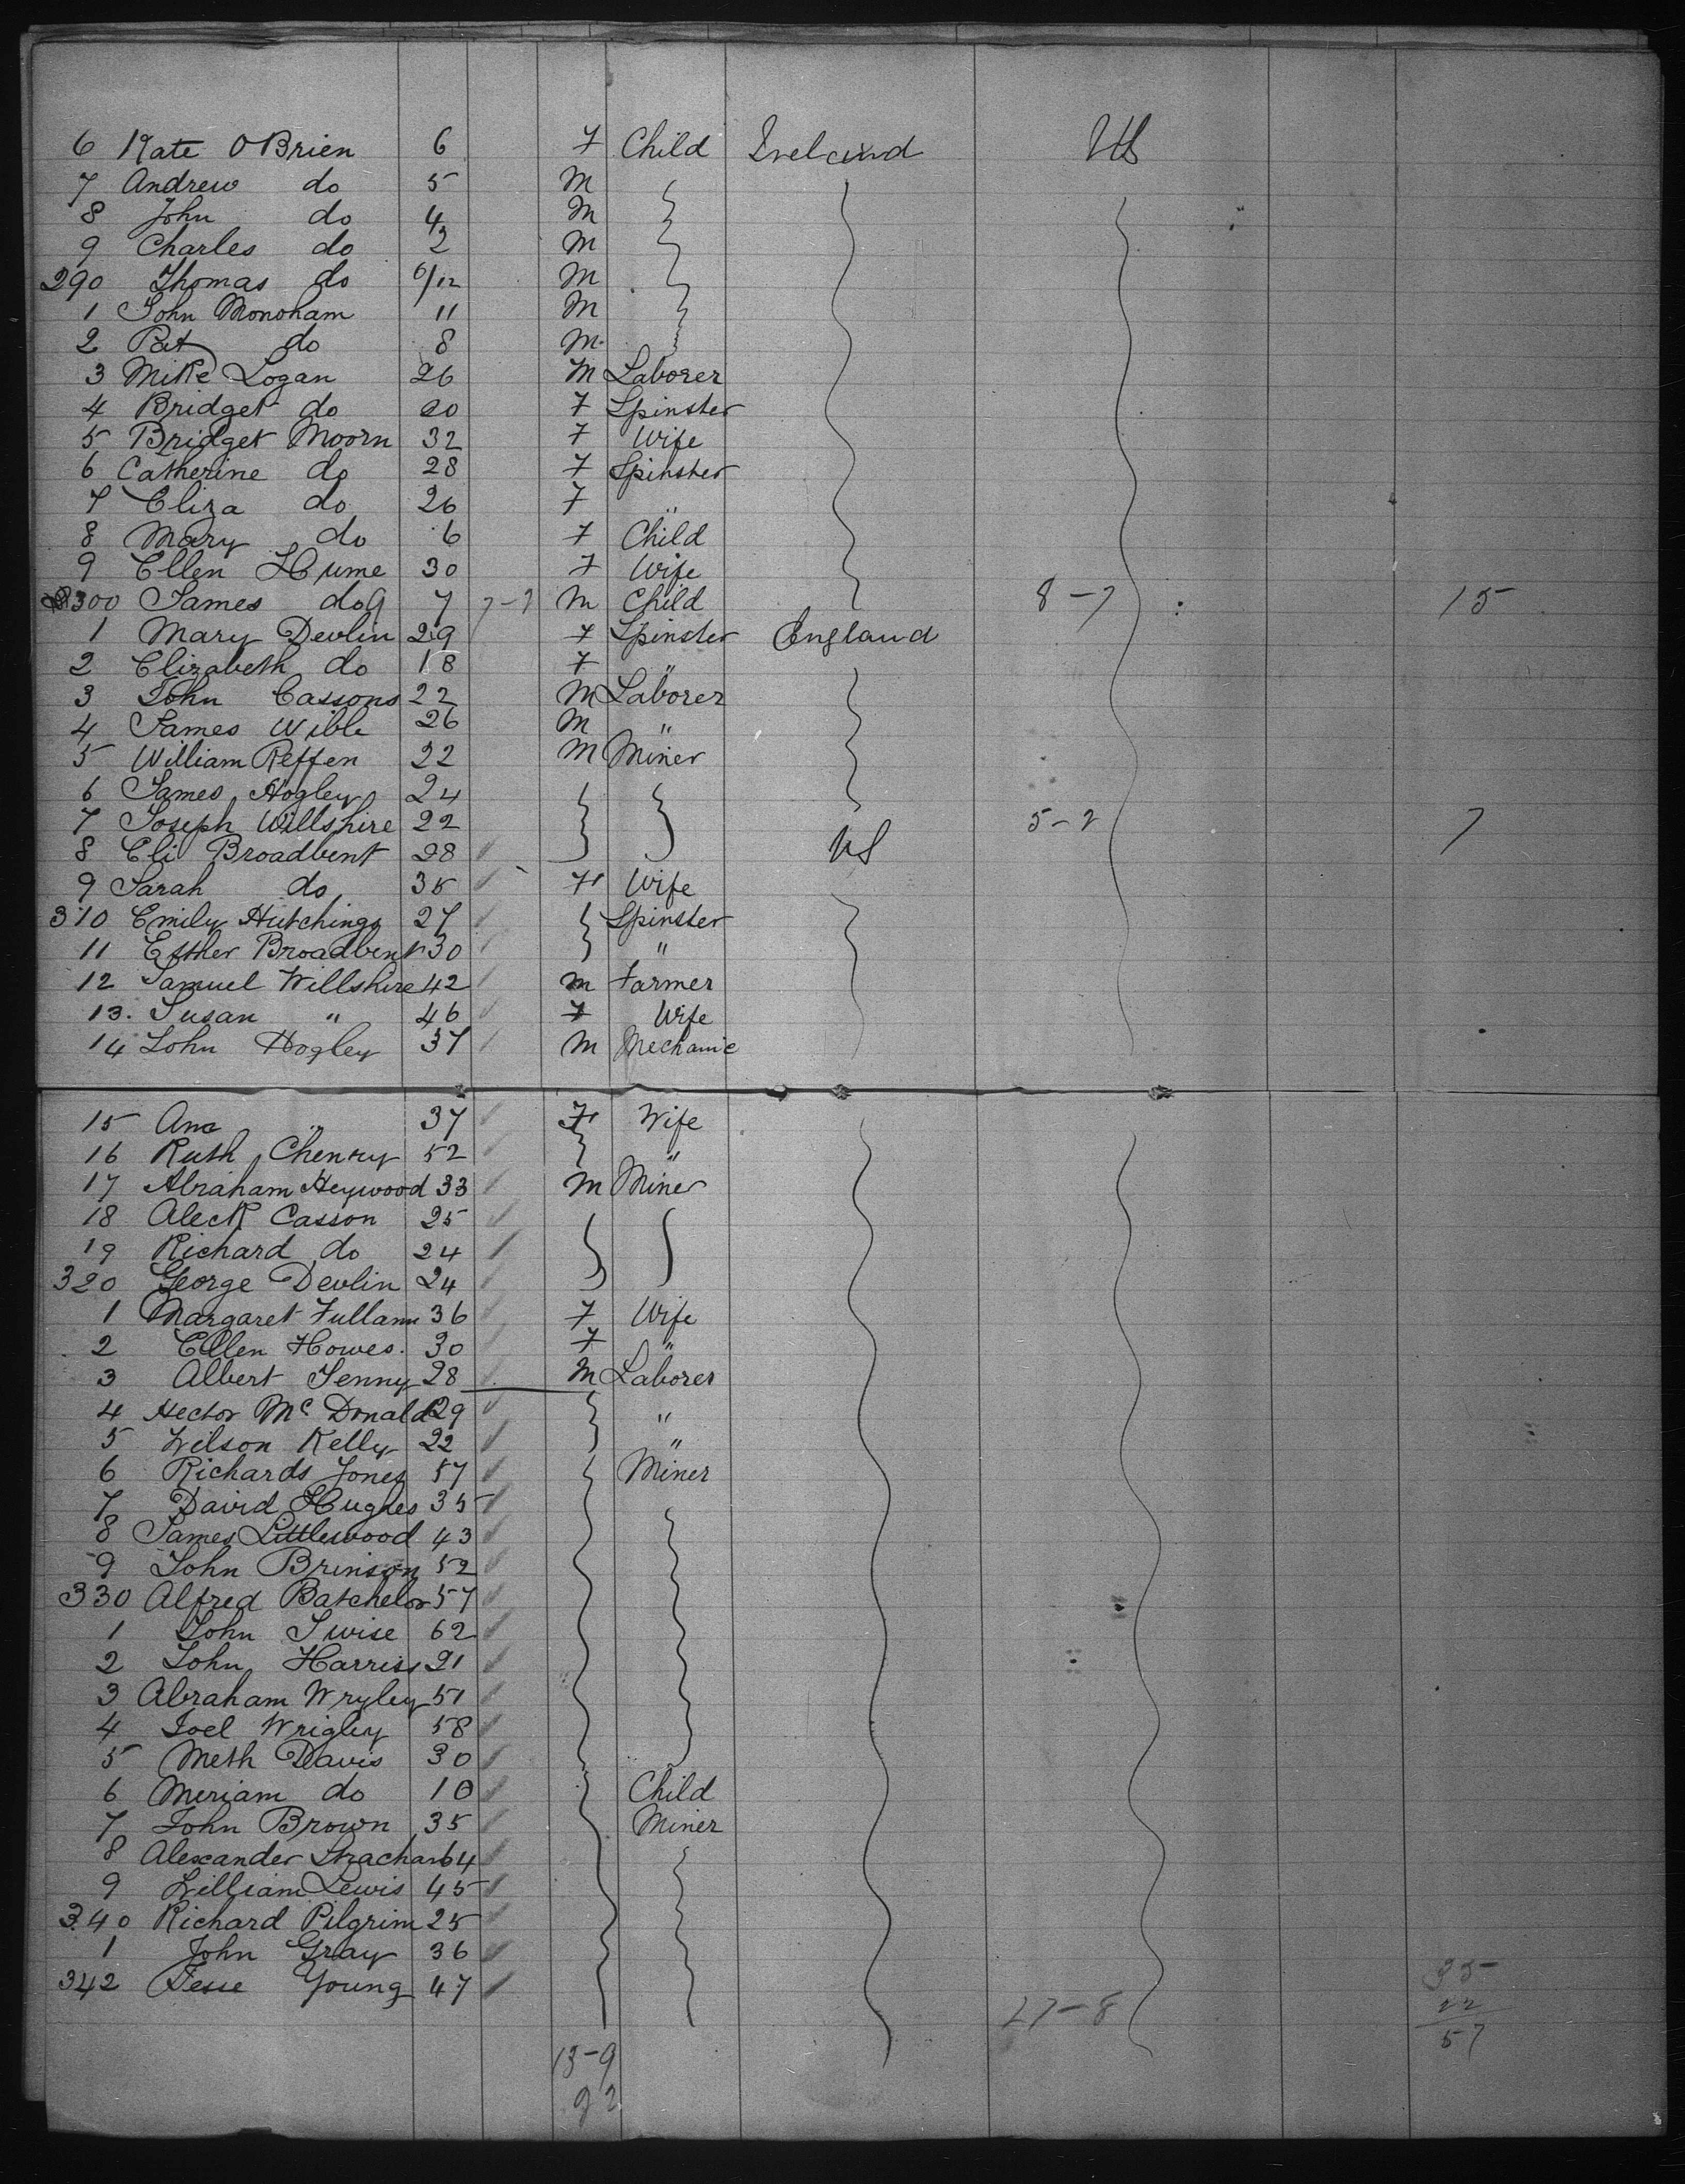 6 Kate OBrien 6 F Child Ireland US
7 Andrew do 5 M
8 John do 4 M
9 Charles do 2 M
290 Thomas do 6/12 M
1 John Monoham 11 M
2 Pat do 8 M
3 Mike Logan 26 M Laborer
4 Bridget do 20 F Spinster
5 Bridget Moorn 32 F Wife
6 Catherine do 28 F Spinster
7 Eliza do 26 F "
8 Mary do 6 F Child
9 Ellen Hume 30 F Wife
300 James do 7 7-7 M Child 8-7 15
1 Mary Devlin 29 F Spinster England
2 Elizabeth do 18 F "
3 John Cassons 22 M Laborer
4 James Wible 26 M "
5 William Reffen 22 M Miner
6 James Hogley 24
7 Joseph Willshire 22 5-2 7
8 Eli Broadbent 28 US
9 Sarah do 35 F Wife
310 Emily Hutchings 27 Spinster
11 Esther Broadbent 30 "
12 Samuel Willshire 42 M Farmer
13. Susan " 46 F Wife
14 John Hogley 37 M Mechanic
15 Ann " 37 F Wife
16 Ruth Chenry 52 "
17 Abraham Heywood 33 M Miner
18 Aleck Casson 25
19 Richard do 24
320 George Devlin 24
1 Margaret Fullam 36 F Wife
2 Ellen Howes. 30 F "
3 Albert Jenny 28 M Laborer
4 Hector Mc Donald 29 "
5 Wilson Kelly 22 "
6 Richards Jones 57 Miner
7 David Hughes 35
8 James Littlewood 43
9 John Brinson 52
330 Alfred Batchelor 57
1 John Twise 62
2 John Harriss 21
3 Abraham Wryley 51
4 Joel Wrigley 58
5 Meth Davis 30
6 Meriam do 10 Child
7 John Brown 35 Miner
8 Alexander Strachan 64
9 William Lewis 45
340 Richard Pilgrim 25
1 John Gray 36
342 Jesse Young 47 35
27-8 22
57
13-9